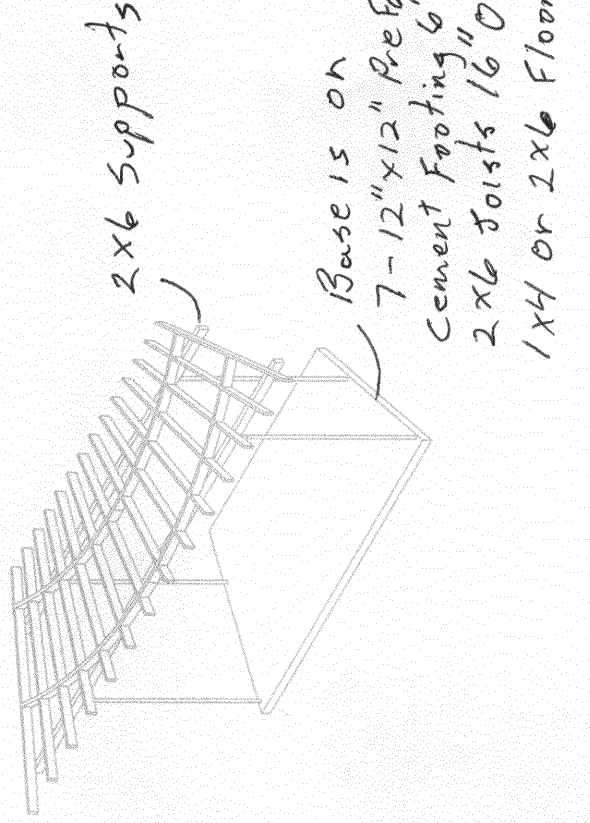 2x6 Supports
Base is on
7-12"x12" Prefa
Cement Footing 6"
2x6 Joists 16" O
1x4 or 2x6 Floor